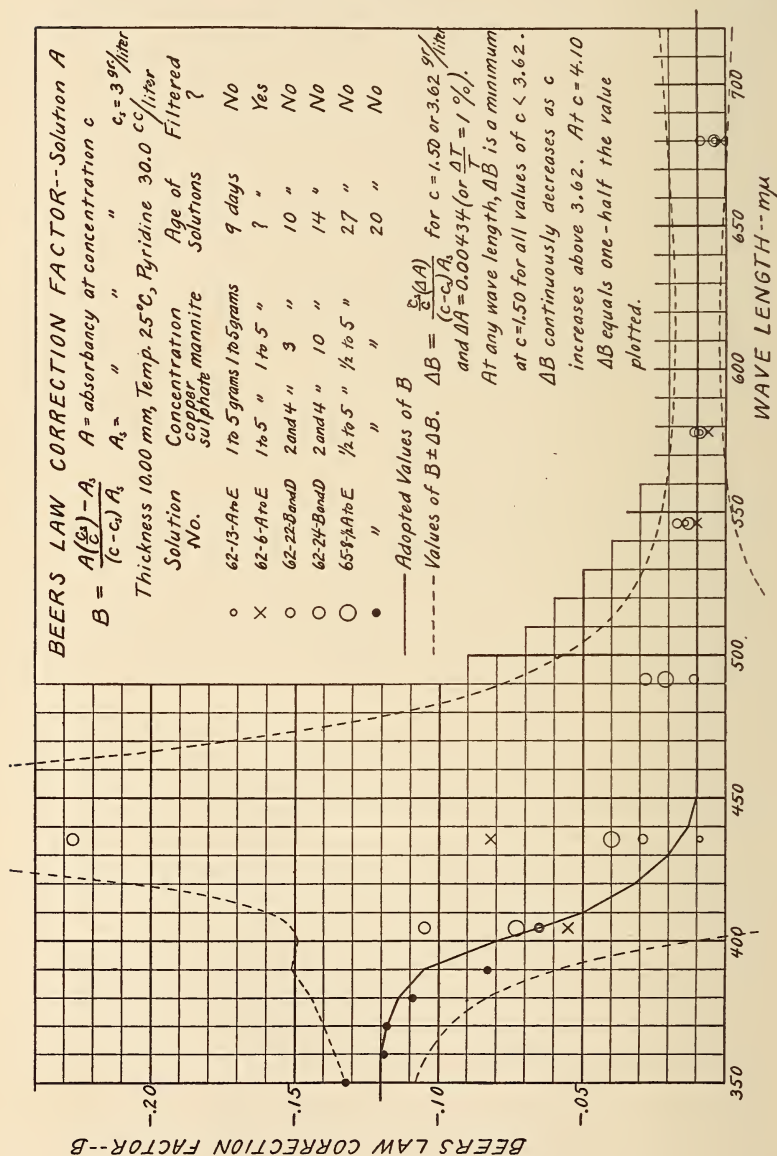 BEERS LAW CORRECTION FACTOR--Solution A
B = A(c_s/c) − A_s / (c − c_s) A_s   A = absorbancy at concentration c
A_s = " " " c_s = 3 gr/liter
Thickness 10.00 mm, Temp. 25°C, Pyridine 30.0 cc/liter
Solution No.   Concentration copper sulphate mannite   Age of Solutions   Filtered ?
○ 62-13-A to E   1 to 5 grams 1 to 5 grams   9 days   No
× 62-6-A to E   1 to 5 " 1 to 5 "   ? "   Yes
○ 62-22-B and D   2 and 4 " 3 "   10 "   No
○ 62-24-B and D   2 and 4 " 10 "   14 "   No
○ 65-8-½ A to E   ½ to 5 " ½ to 5 "   27 "   No
● "   " "   20 "   No
—— Adopted Values of B
---- Values of B ± ΔB. ΔB = (c_s/c)(ΔA) / (c − c_s) A_s for c = 1.50 or 3.62 gr/liter
and ΔA = 0.00434 (or ΔT/T = 1 %).
At any wave length, ΔB is a minimum
at c = 1.50 for all values of c < 3.62.
ΔB continuously decreases as c
increases above 3.62. At c = 4.10
ΔB equals one-half the value
plotted.
BEERS LAW CORRECTION FACTOR--B
-.20
-.15
-.10
-.05
350
400
450
500
550
600
650
700
WAVE LENGTH--mμ